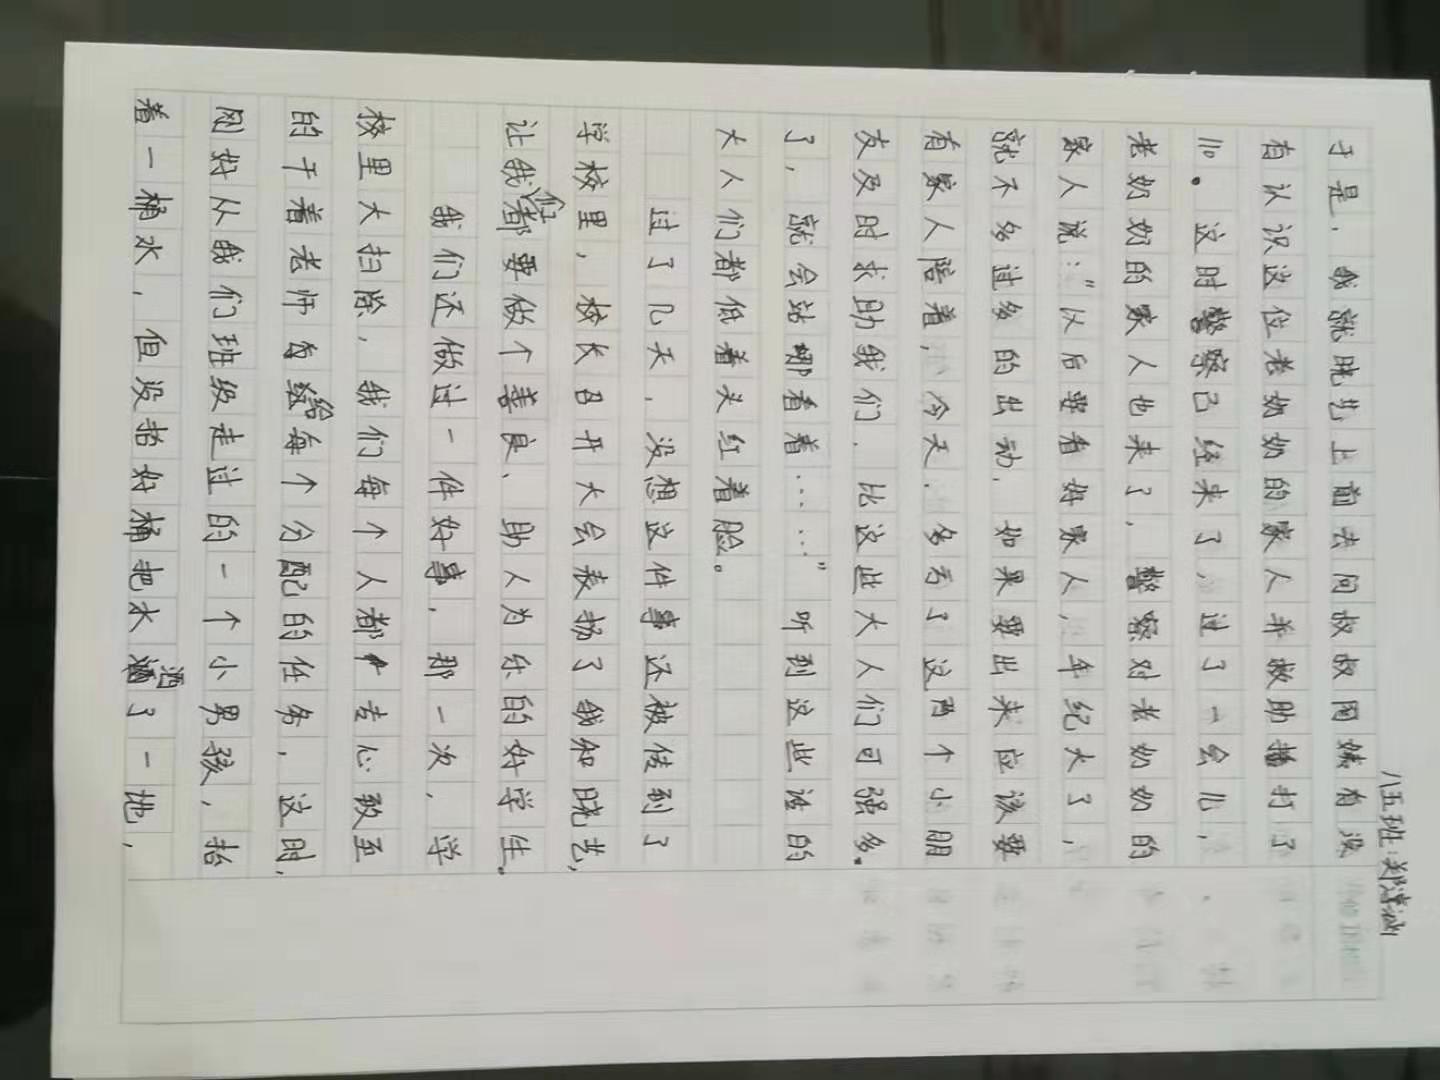 八五班：郑淳涵
于是，我就晓艺上前去问叔叔阿姨有没
有认识这位老奶奶的家人并救助播打了
110。这时警察已经来了，过了一会儿，
老奶奶的家人也来了，警察对老奶奶的
家人说：“以后要看好家人，年纪大了，
就不多过多的出动，如果要出来应该要
有家人陪着，今天，多亏了这两个小朋
友及时求助我们，比这些大人们可强多。
了，就会站哪看着……”听到这些话的
大人们都低着头红着脸。
过了几天，没想这件事还被传到了
学校里，校长召开大会表扬了我和晓艺，
让我们都要做个善良、助人为乐的好学生。
我们还做过一件好事，那一次，学
校里大扫除，我们每个人都专心致至
的干着老师给每个分配的任务，这时，
刚好从我们班级走过的一个小男孩，抬
着一桶水，但没抬好桶把水洒了一地，